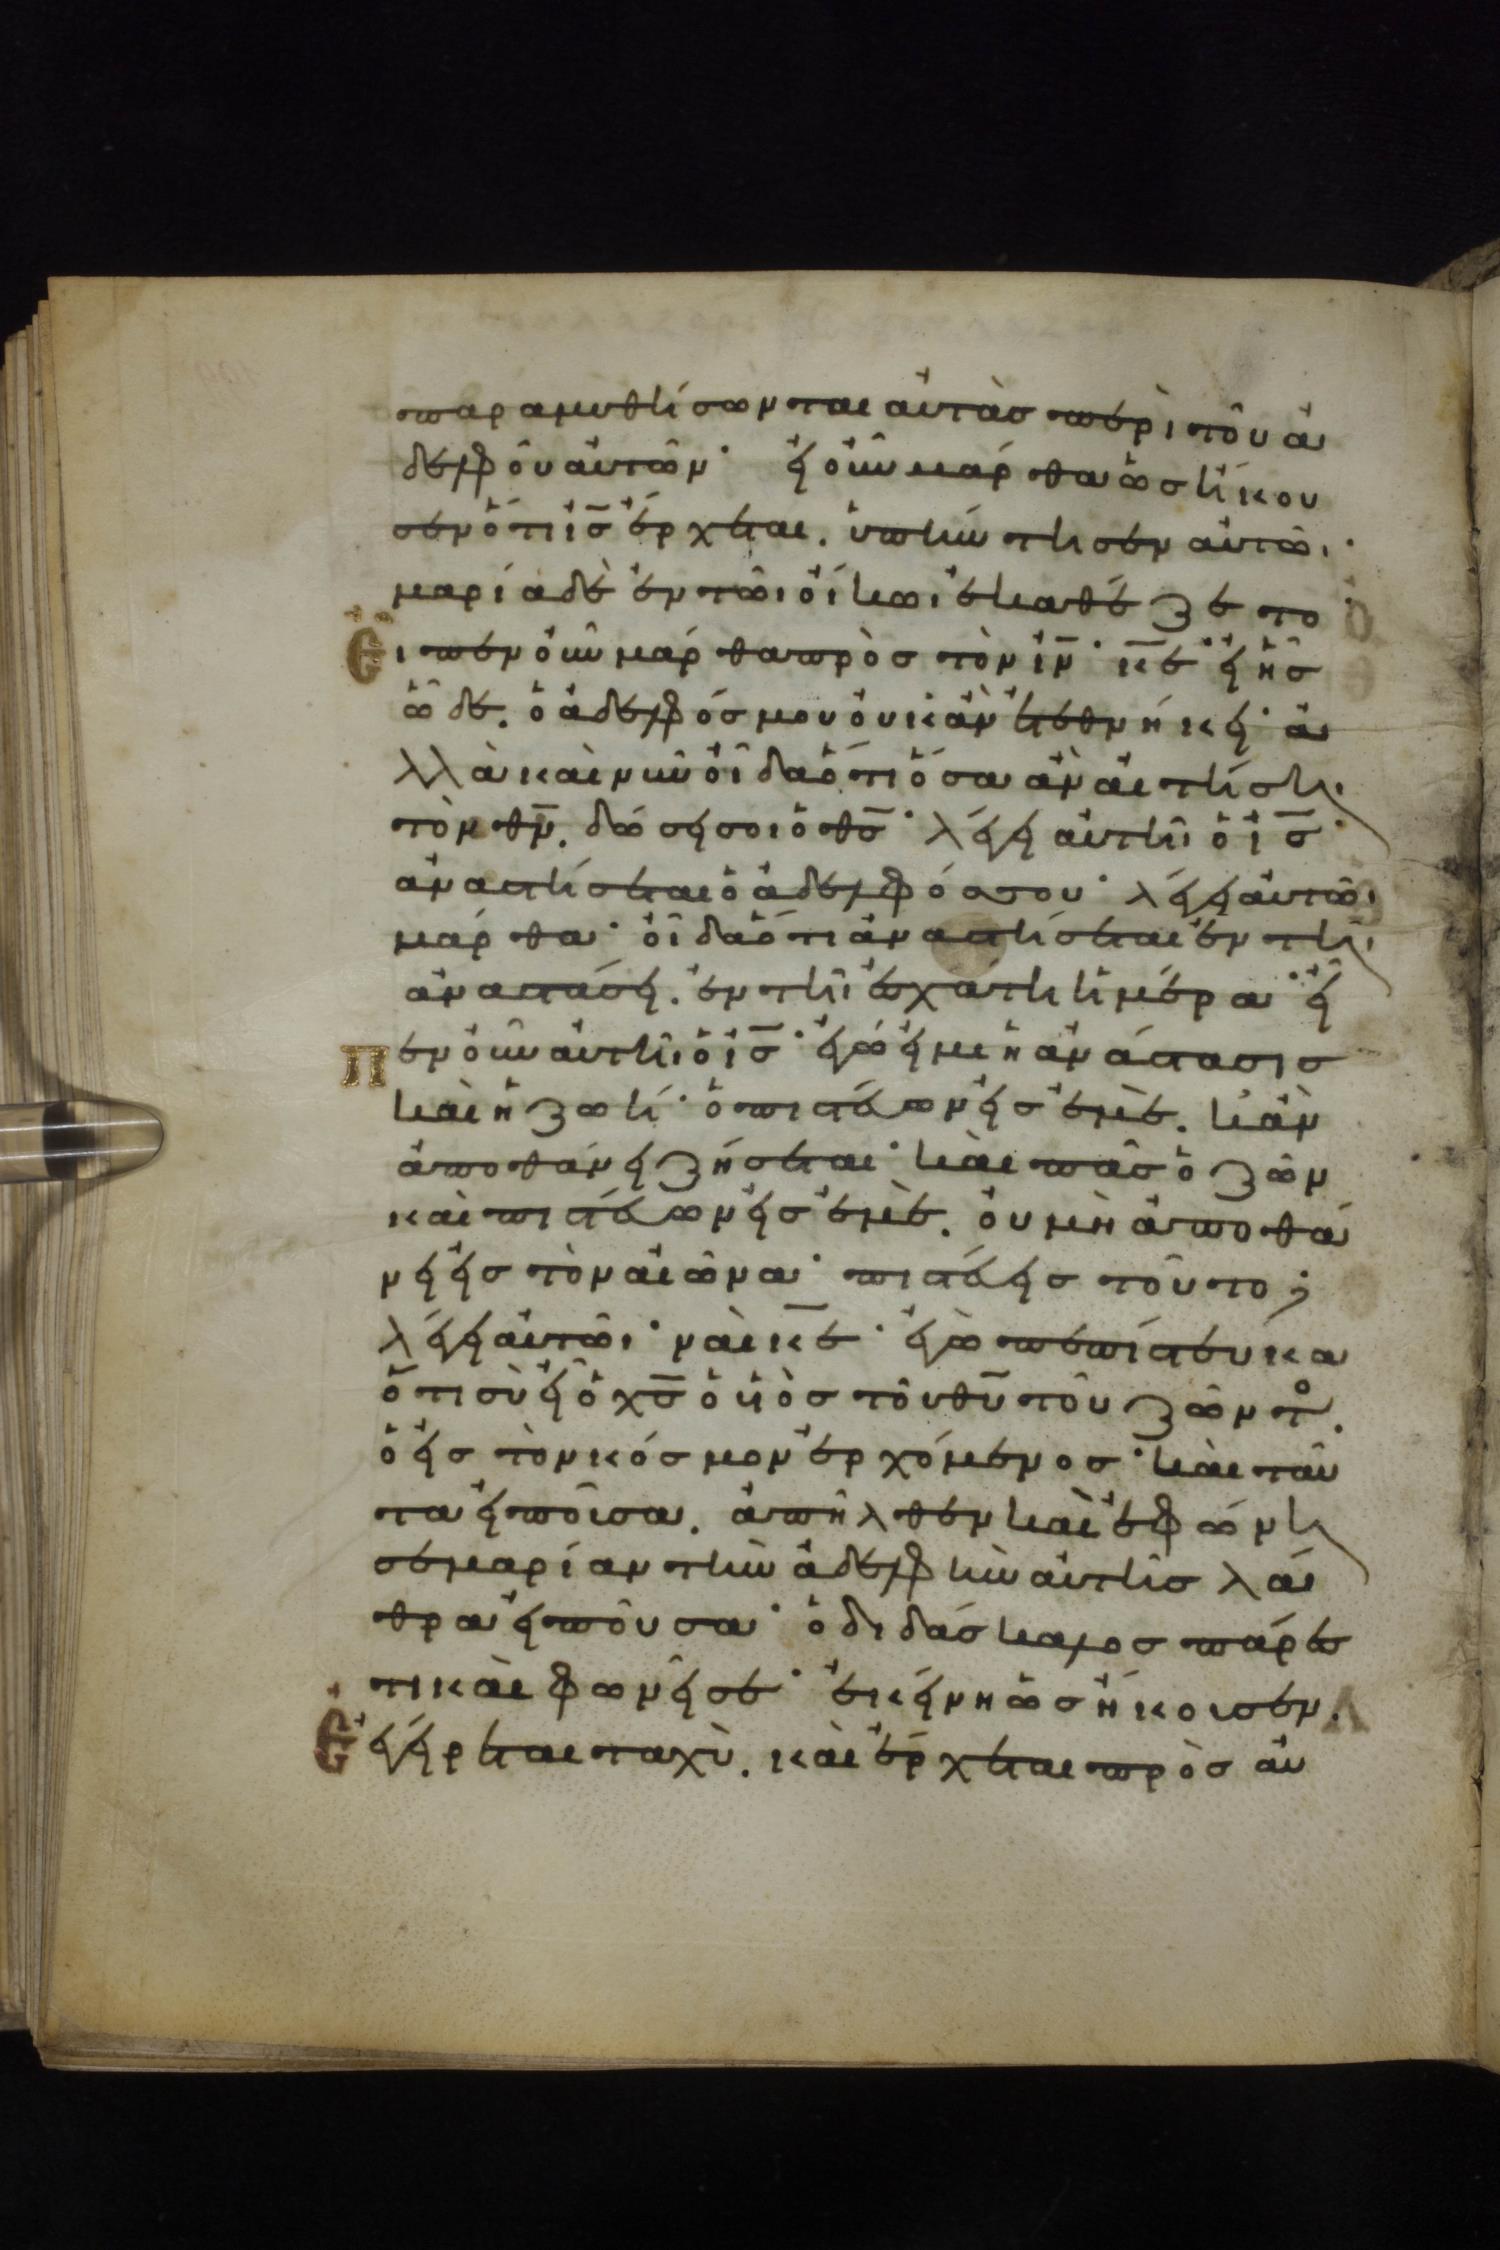 παραμυθήσωνται αὐτὰσ περὶ τοῦ ἀ
δελφοῦ αὐτῶν· ἡ οὖν μάρθα ὡσ ἤκου
σεν ὅτι ἰ̅σ̅ ἔρχεται. ὑπήντησεν αὐτῶι·
μαρία δὲ ἐν τῶι οἴκωι ἐκαθέζετο·
Εἶπεν οὖν μάρθα πρὸσ τὸν ἰ̅ν̅· κ̅ε̅ εἰ ἦσ
ὧδε. ὁ ἀδελφόσ μου οὐκ ἂν ἐτεθνήκει· ἀ
λλὰ καὶ νῦν οἶδα ὅτι ὅσα ἂν αἰτήσηι
τὸν θ̅ν̅. δώσει σοι ὁ θ̅σ̅· λέγει αὐτῆι ὁ ἰ̅σ̅·
ἀναστήσεται ὁ ἀδελφόσ σου· λέγει αὐτῶι
μάρθα· οἶδα ὅτι ἀναστήσεται ἐν τῆι
ἀναστάσει. ἐν τῆι ἐσχάτη ἡμέρα· εἶ
πεν οὖν αὐτῆι ὁ ἰ̅σ̅· ἐγώ εἰμι ἡ ἀνάστασισ
καὶ ἡ ζωή· ὁ πιστεύων εἰσ ἐμὲ. κἂν
ἀποθάνει ζήσεται· καὶ πᾶσ ὁ ζῶν
καὶ πιστεύων εἰσ ἐμὲ. οὐ μὴ ἀποθά
νει εἰσ τὸν αἰῶνα· πιστεύεισ τοῦτο;
λέγει αὐτῶι· ναὶ κ̅ε̅· ἐγὼ πεπίστευκα
ὅτι σὺ εἶ ὁ χ̅σ̅ ὁ υἱὸσ τοῦ θ̅υ̅ τοῦ ζῶντο.
ὁ εἰσ τὸν κόσμον ἐρχόμενοσ· καὶ ταῦ
τα εἰποῦσα. ἀπῆλθεν καὶ ἐφώνη
σε μαρίαν τὴν ἀδελφὴν αὐτῆσ λά
θρα εἰποῦσα· ὁ διδάσκαλοσ πάρεσ
τι καὶ φωνεῖ σε· ἐκείνη ὡσ ἤκουσεν.
Ἐγείρεται ταχὺ. καὶ ἔρχεται πρὸσ αὐ